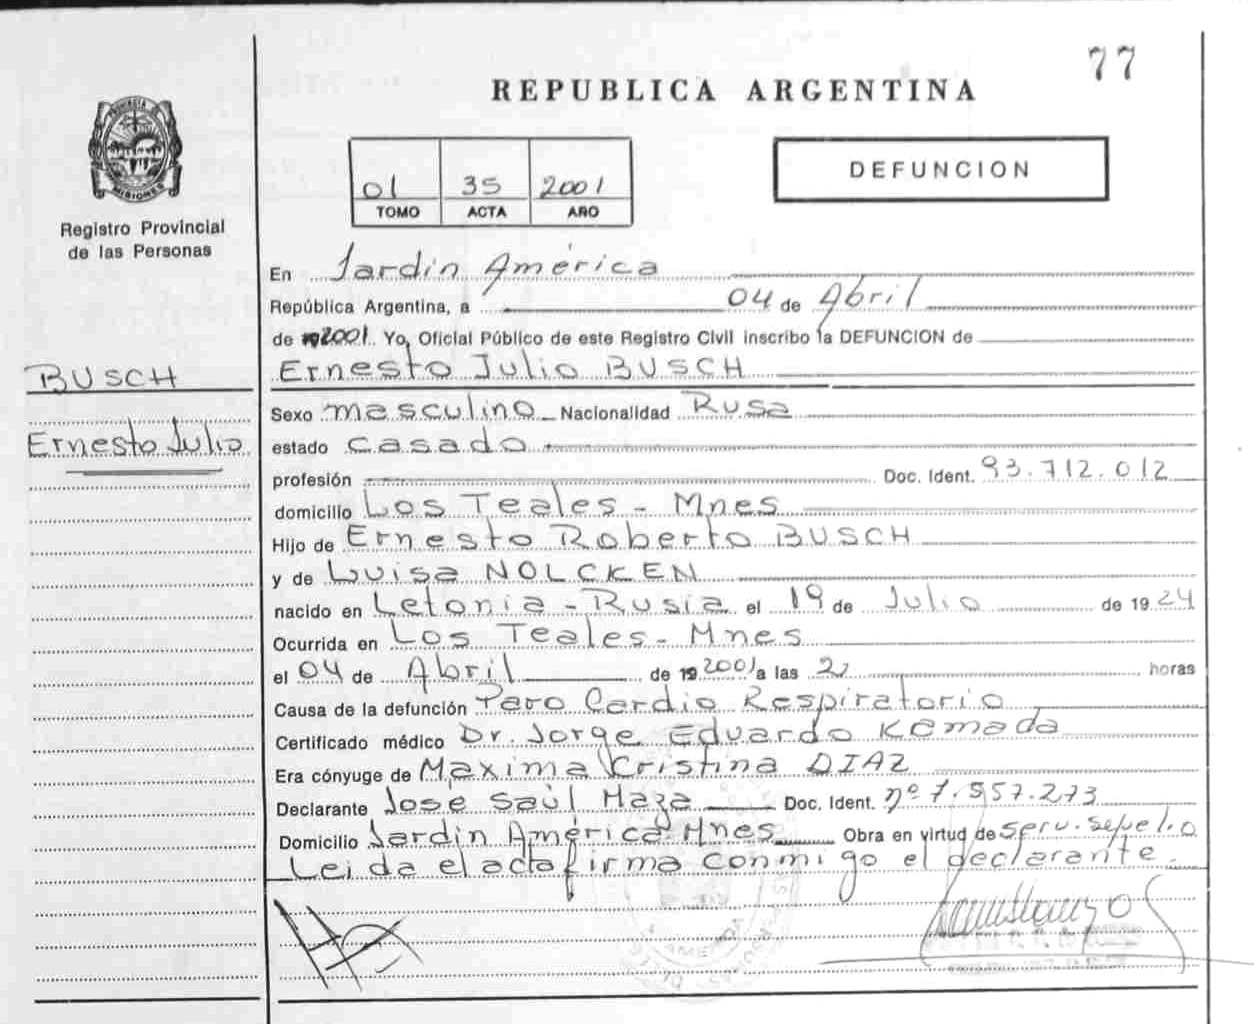 77
REPUBLICA ARGENTINA
PROVINCIA DE
MISIONES
Registro Provincial
de las Personas
01 35 2001
TOMO ACTA AÑO
DEFUNCION
En Jardín América
República Argentina, a 04 de Abril
de 2001. Yo, Oficial Público de este Registro Civil inscribo la DEFUNCION de
BUSCH
Ernesto Julio BUSCH
Sexo masculino Nacionalidad Rusa
Ernesto Julio
estado casado
profesión Doc. Ident. 93.712.012
domicilio Los Teales - Mnes
Hijo de Ernesto Roberto BUSCH
y de Luisa NOLCKEN
nacido en Letonia - Rusia el 19 de Julio de 1924
Ocurrida en Los Teales - Mnes
el 04 de Abril de 19 2001 a las 21 horas
Causa de la defunción Paro Cardio Respiratorio
Certificado médico Dr. Jorge Eduardo Kamada
Era cónyuge de Maxima Cristina DIAZ
Declarante José Saúl Maza Doc. Ident. nº 7.557.273
Domicilio Jardín América Mnes Obra en virtud de serv. sepelio
Leida el acta firma conmigo el declarante.